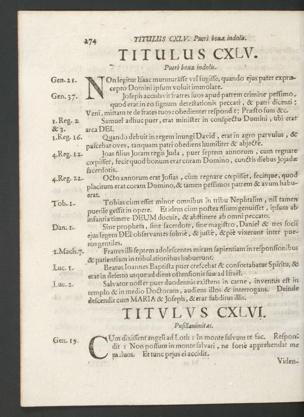 274 TITULUS CXLV. Pueri bonæ indolis.
TITULUS CXLV.
Pueri bonæ indolis.
Gen. 22. NOn legitur Isaac murmurâsse vel fugisse, quando ejus pater expræ-
cepto Domini ipsum voluit immolare.
Gen. 37. Joseph accusavit fratres suos apud patrem crimine pessimo,
quod erat in eo signum detestationis peccati, & patri dicenti:
Veni, mittam te ad fratres tuos; obedienter respondit: Præsto sum &c.
1. Reg. 2 Samuel adhuc puer, erat minister in conspectu Domini, ubi erat
& 3. arca DEI.
1. Reg. 16. Quando debuit in regem inungi David, erat in agro parvulus, &
pascebat oves, tanquam patri obediens humiliter & abjectè.
4. Reg. 12. Joas filius Joram regis Juda, puer septem annorum, cum regnare
cœpisset, fecit quod bonum erat coram Domino, cunctis diebus Jojadæ
sacerdotis.
4. Reg. 22. Octo annorum erat Josias, cum regnare cœpisset, fecitque, quod
placitum erat coram Domino, & tamen pessimos patrem & avum habu-
erat.
Tob. 1. Tobias cum esset minor omnibus in tribu Nephtalim, nil tamen
puerile gessit in opere. Et idem cum postea filium genuisset, ipsum ab
infantia timere DEUM docuit, & abstinere ab omni peccato.
Dan. 1. Sine prophetis, sine sacerdote, sine magistro, Daniel & tres socii
ejus legem DEI observantes sobriè, & justè, & piè viverunt inter pue-
ros gentiles.
2. Mach. 7. Fratres illi septem adolescentes miram sapientiam in responsionibus
& patientiam in tribulationibus habuerunt.
Luc. 1. Beatus Joannes Baptista puer crescebat & confortabatur Spiritu, &
erat in deserto usque ad diem ostensionis suæ ad Israël.
Luc. 2. Salvator noster puer duodennis existens in carne, inventus est in
templo & in medio Doctorum, audiens illos & interrogans. Deinde
descendit cum MARIA & Joseph, & erat subditus illis.
TITULUS CXLVI.
Pusillanimitas.
Gen. 19. CUm dixissent angeli ad Loth: In monte salvum te fac. Respon-
dit: Non possum in monte salvari, ne fortè apprehendat me
malum. Et tunc
Viden-